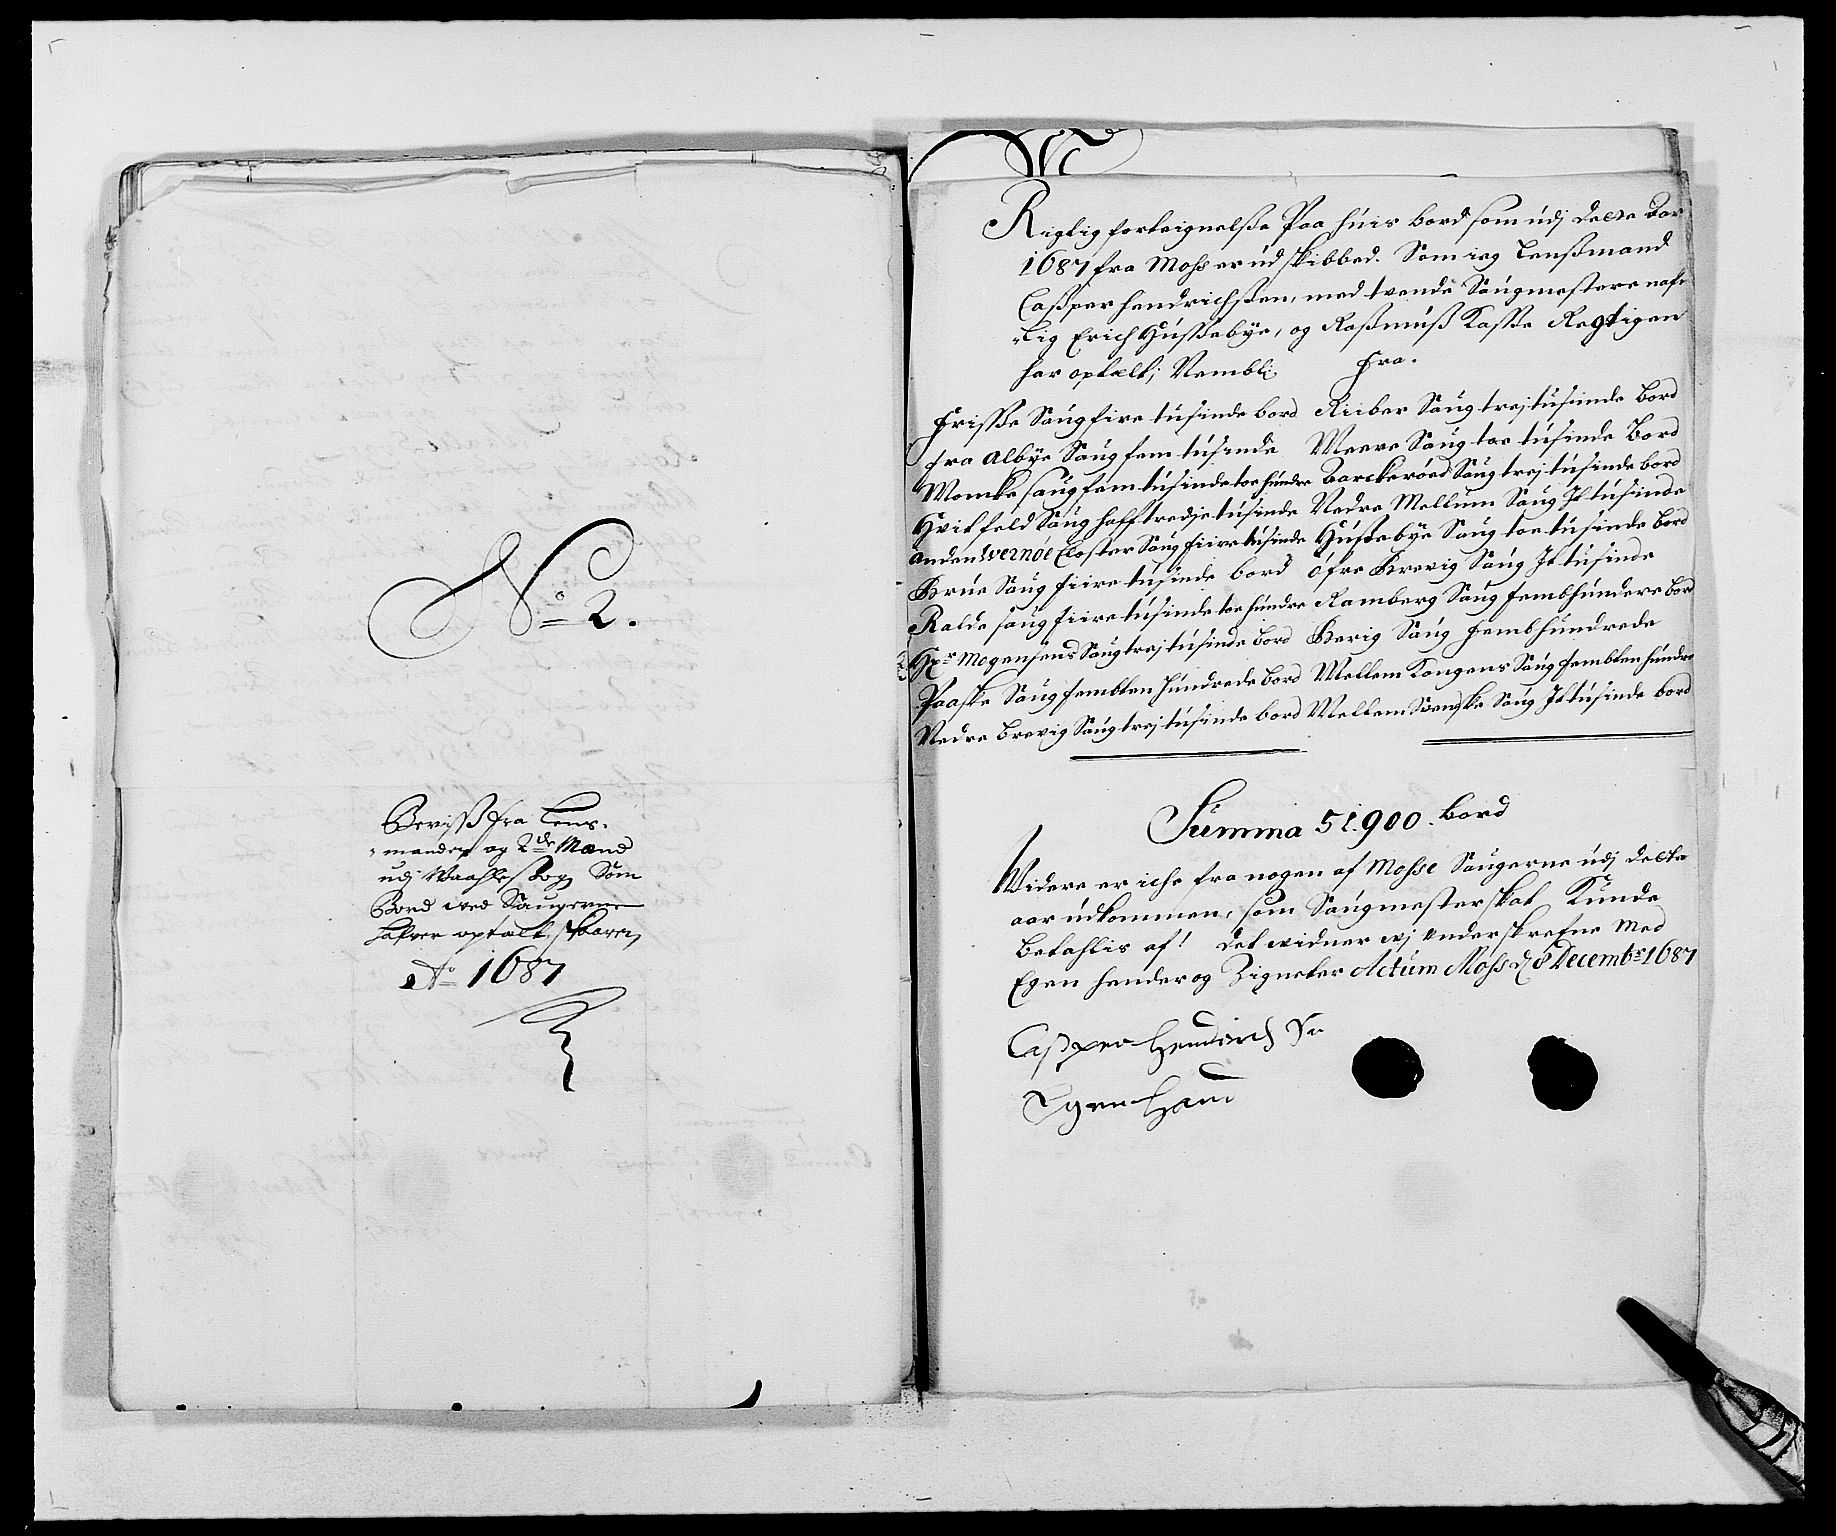 No 2.
Beviss fra Lens-
manden og 2de Mænd
udj Waahler Sogn Som
Bord ved Saugerne
hafver optalt, skaaren,
Ao 1687
Rigtig forteignelsse Paa huis bord som udj dette Aar
1687 fra Moss er udskibbed. Som ieg Lenssmand
Cassper hendrichssen, med tvende Saugmestere nafn-
lig Erich Hussebye, og Rassmuss Kasse Regtigen
har optælt; Nembl: Fra.
Frisse Saug fire tusinde bord
fra Albye Saug fem tusinde
Womke saug fem tusinde toe hundre
Hvitfeld Saug halftredje tusinde
anden Wernöe Closter Saug fiire tusinde
Krue Saug fiire tusinde bord
Ralde saug fiire tusinde toe hundre
Hr Mogensens Saug trej tusinde bord
Paaske Saug fembten hundrede bord
Nedre Brevig Saug trej tusinde bord
Riiber Saug trej tusinde bord
Meere Saug toe tusinde Bord
Aarckeröed Saug trej tusinde bord
Nedre Mellum Saug It tusinde
Hussebye Saug toe tusinde bord
öfre Krevig Saug It tusinde
Ramberg Saug fembhundere bord
Kerig Saug Fembhundrede
Mellem Kongens Saug fembten hundre
Mellem Svenske Saug It tusinde bord
Summa 51.900. bord
Widere er iche fra nogen af Mosse Saugerne udj dette
aar udkommen, som Saugmesterskat Kunde
betahlis af! det vidner vj underskrefne Med
Egen hender og Zigneter Actum Moss d 8 Decembr 1687
Cassper Hendrich Sn
Egen Haand